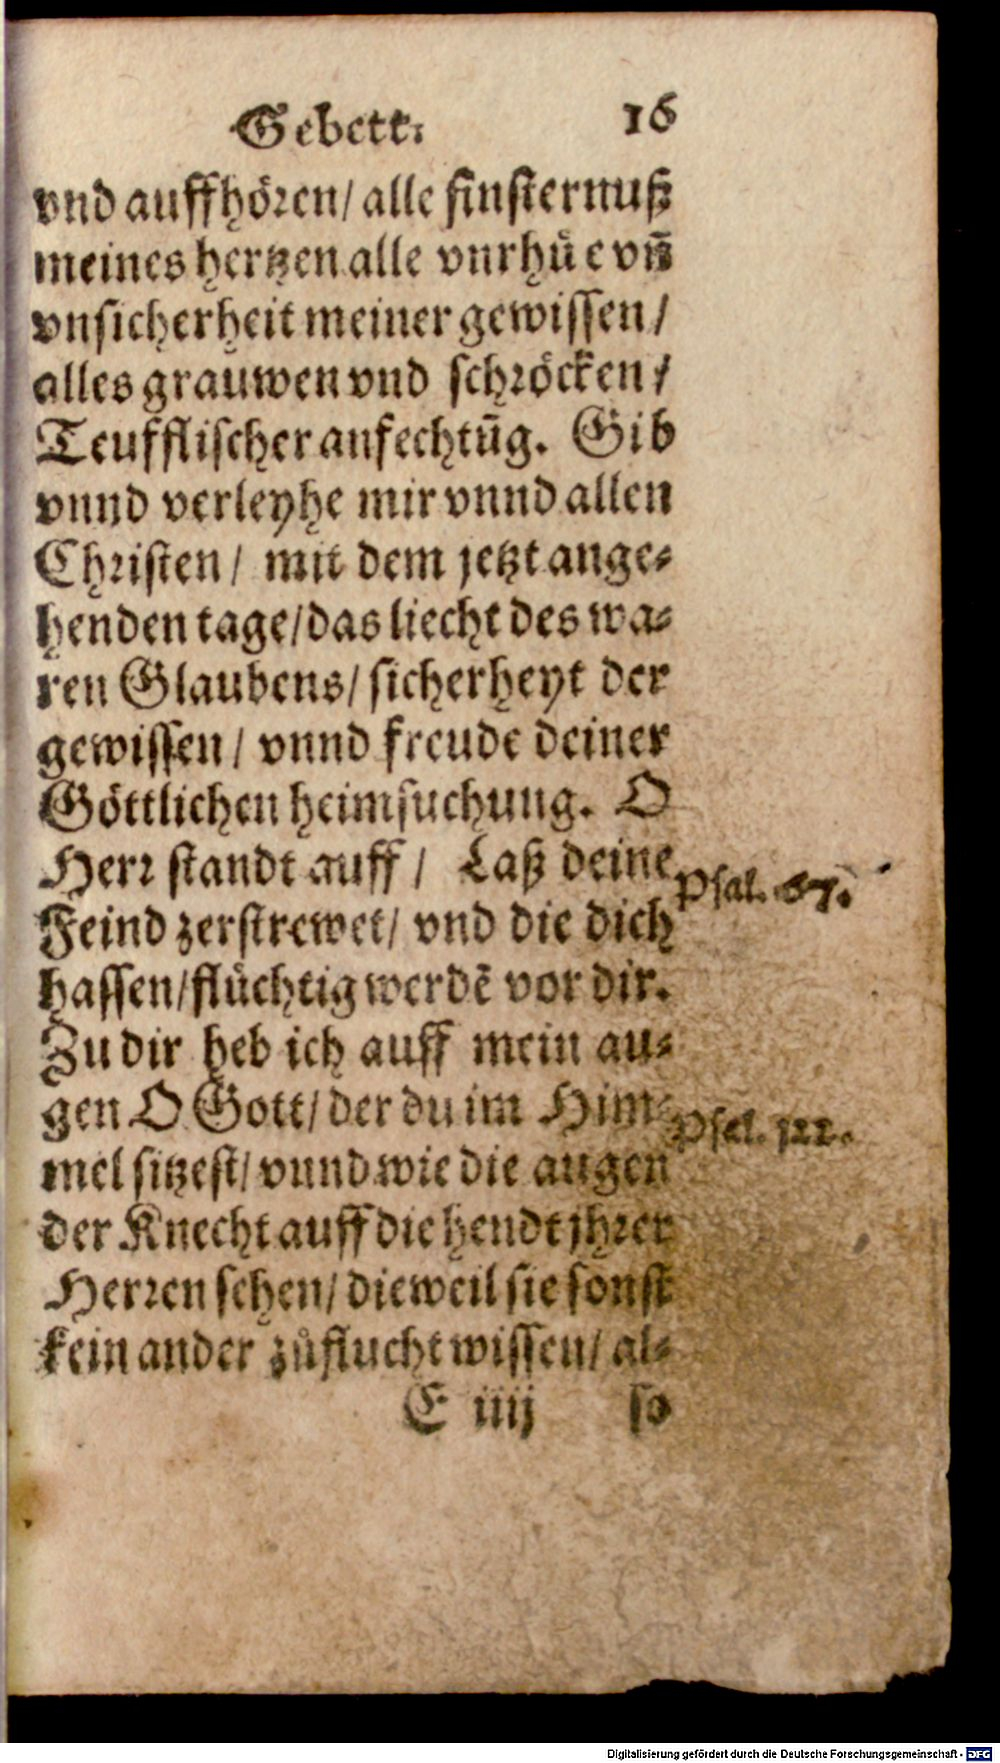 Gebett. 16
vnd auffhören/ alle finsternuß
meines hertzen alle vnrhůe vñ
vnsicherheit meiner gewissen/
alles grauwen vnd schröcken/
Teufflischer anfechtũg. Gib
vnnd verleyhe mir vnnd allen
Christen/ mit dem jetzt ange-
henden tage/das liecht des wa-
ren Glaubens/ sicherheyt der
gewissen/ vnnd freude deiner
Göttlichen heimsuchung. O
Herr standt auff/ Laß deine Psal. 67.
Feind zerstrewet/ vnd die dich
hassen/flüchtig werdẽ vor dir.
Zu dir heb ich auff mein au-
gen O Gott/ der du im Him- Psal. 122.
mel sitzest/ vnnd wie die augen
der Knecht auff die hendt jhrer
Herren sehen/ dieweil sie sonst
kein ander zůflucht wissen/ al-
E iiij so
Digitalisierung gefördert durch die Deutsche Forschungsgemeinschaft - DFG